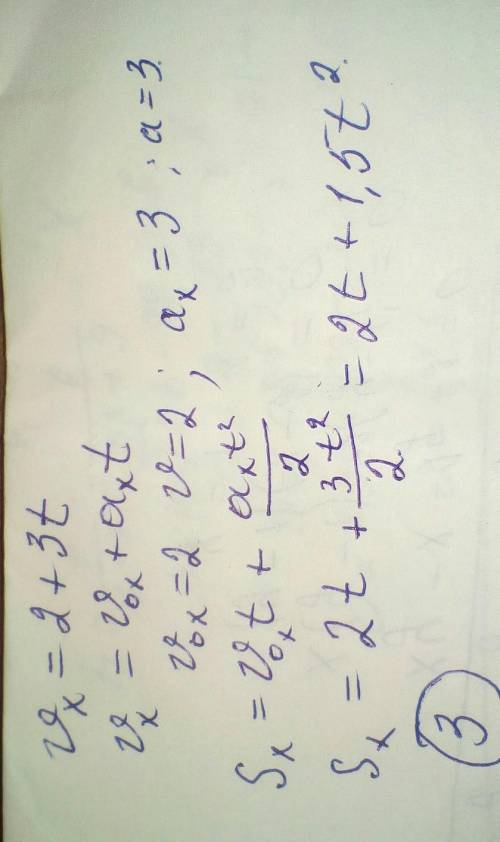 υₓ = 2 + 3t
υₓ = υ₀ₓ + aₓt
υ₀ₓ = 2 υ = 2 ; aₓ = 3 ; a = 3.
Sₓ = υ₀ₓt + aₓt²/2
Sₓ = 2t + 3t²/2 = 2t + 1,5t².
3